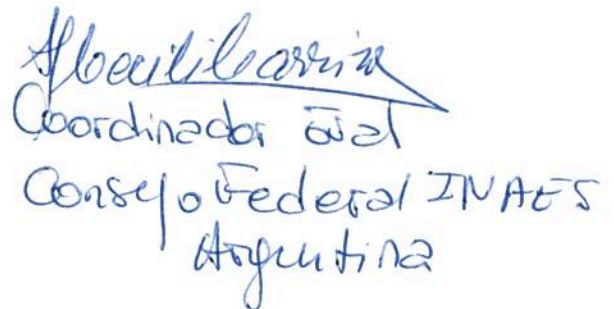 Coordinador Gral
Consejo Federal INAES
Argentina